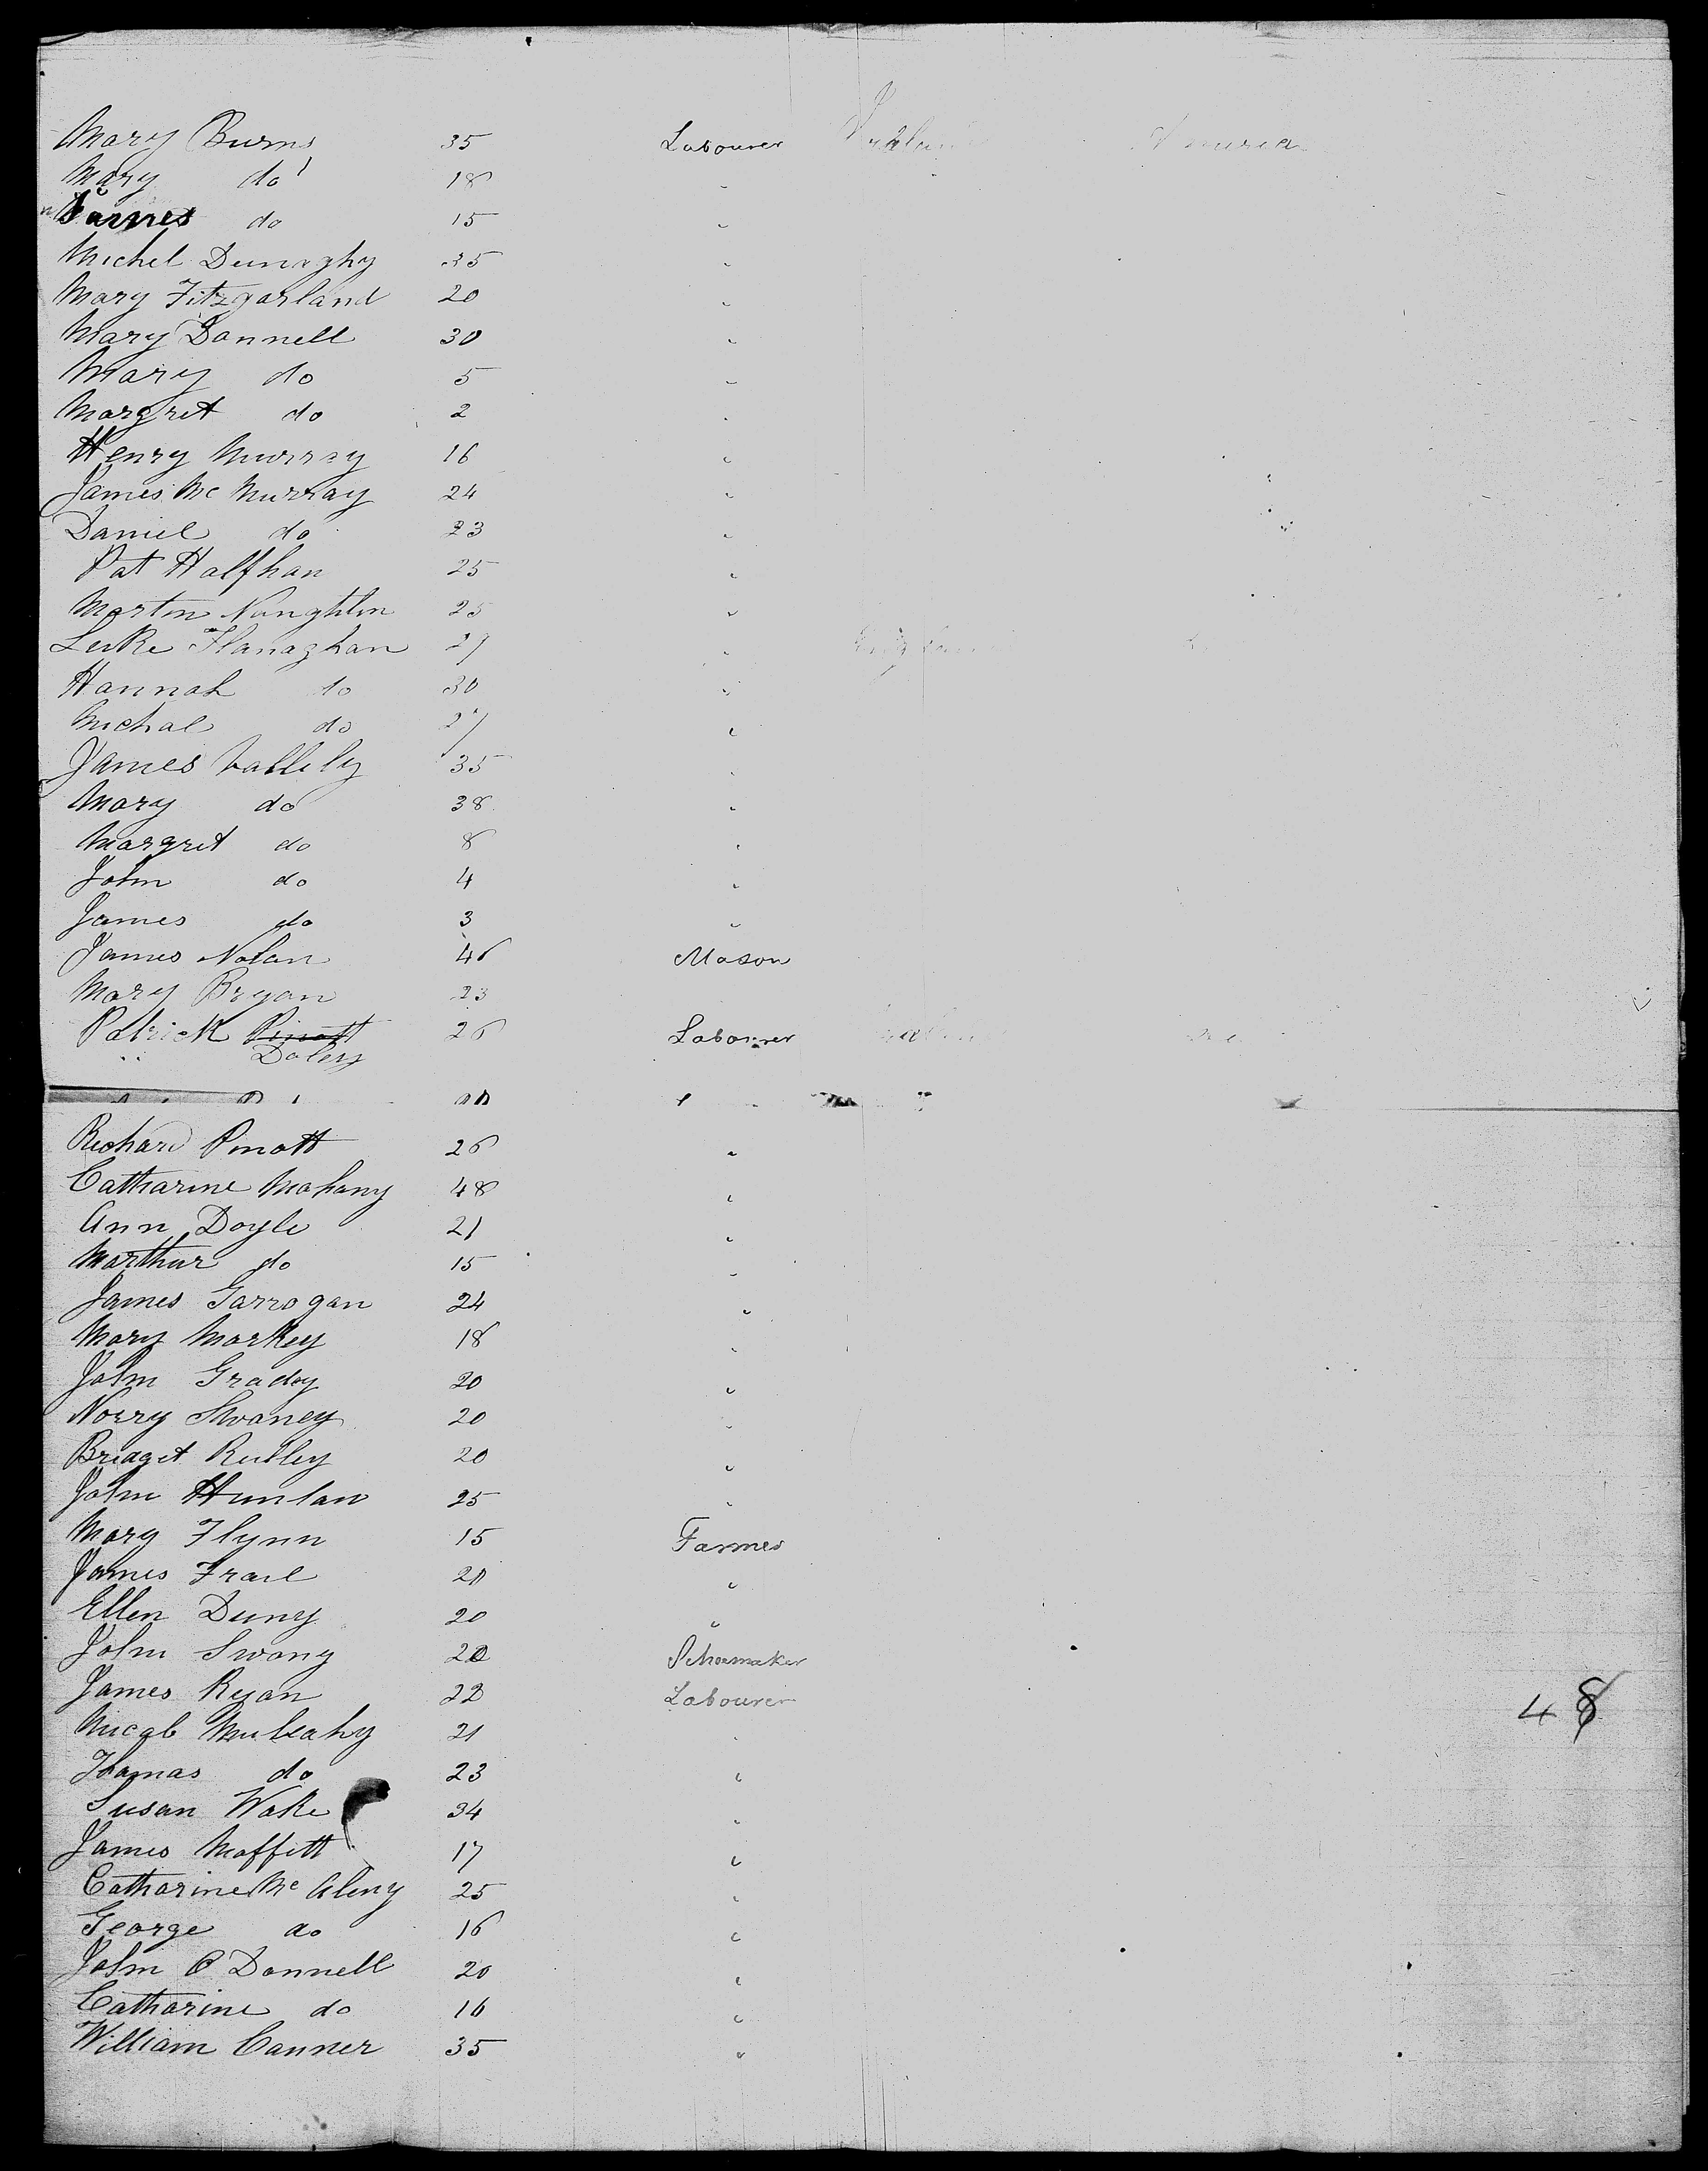 Mary Burns 35 Labourer
Mary do 18 "
James do 15 "
Michel Dunaghy 35 "
Mary Fitzgarland 20 "
Mary Donnell 30 "
Mary do 5 "
Margret do 2 "
Henry Murray 16 "
James Mc Murray 24 "
Daniel do 23 "
Pat Halfhan 25 "
Martin Naughtin 25 "
Luke Flanaghan 27 "
Hannah do 30 "
Michal do 27 "
James Vallely 35 "
Mary do 38 "
Margret do 8 "
John do 4 "
James do 3 "
James Nolan 46 Mason
Mary Bryan 23
Patrick Pinott 26 Labourer
" Daley
Richard Pinott 26 "
Catharine Mahany 48 "
Ann Doyle 21 "
Marthur do 15 "
James Garrogan 24 "
Mary Markey 18 "
John Gradey 20 "
Norry Swaney 20 "
Bridget 20 "
John Hunlan 25 "
Mary Flynn 15 Farmer
James Frail "
Ellen Duny 20 "
John Swany Schoemaker
James Ryan 22 Labourer
48
Mulcahy 21 "
Thomas do 23 "
Susan Wake 34 "
James Moffitt 17 "
Catharine Mc Aleny 25 "
George do 16 "
John O Donnell 20 "
Catharine do 16 "
William Canner 35 "